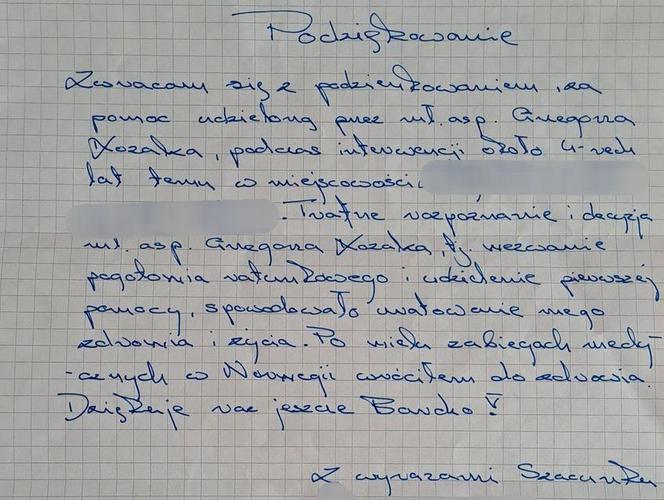 Podziękowanie
Zwracam się z podziękowaniem, za
pomoc udzieloną przez mł. asp. Grzegorza
Kozaka, podczas interwencji około 4-rech
lat temu w miejscowości
. Trafne rozpoznanie i decyzja
mł. asp. Grzegorza Kozaka, tj. wezwanie
pogotowia ratunkowego i udzielenie pierwszej
pomocy, spowodowało uratowanie mego
zdrowia i życia. Po wielu zabiegach medy-
-cznych w Norwegii wróciłem do zdrowia.
Dziękuję raz jeszcze Bardzo!
Z wyrazami Szacunku